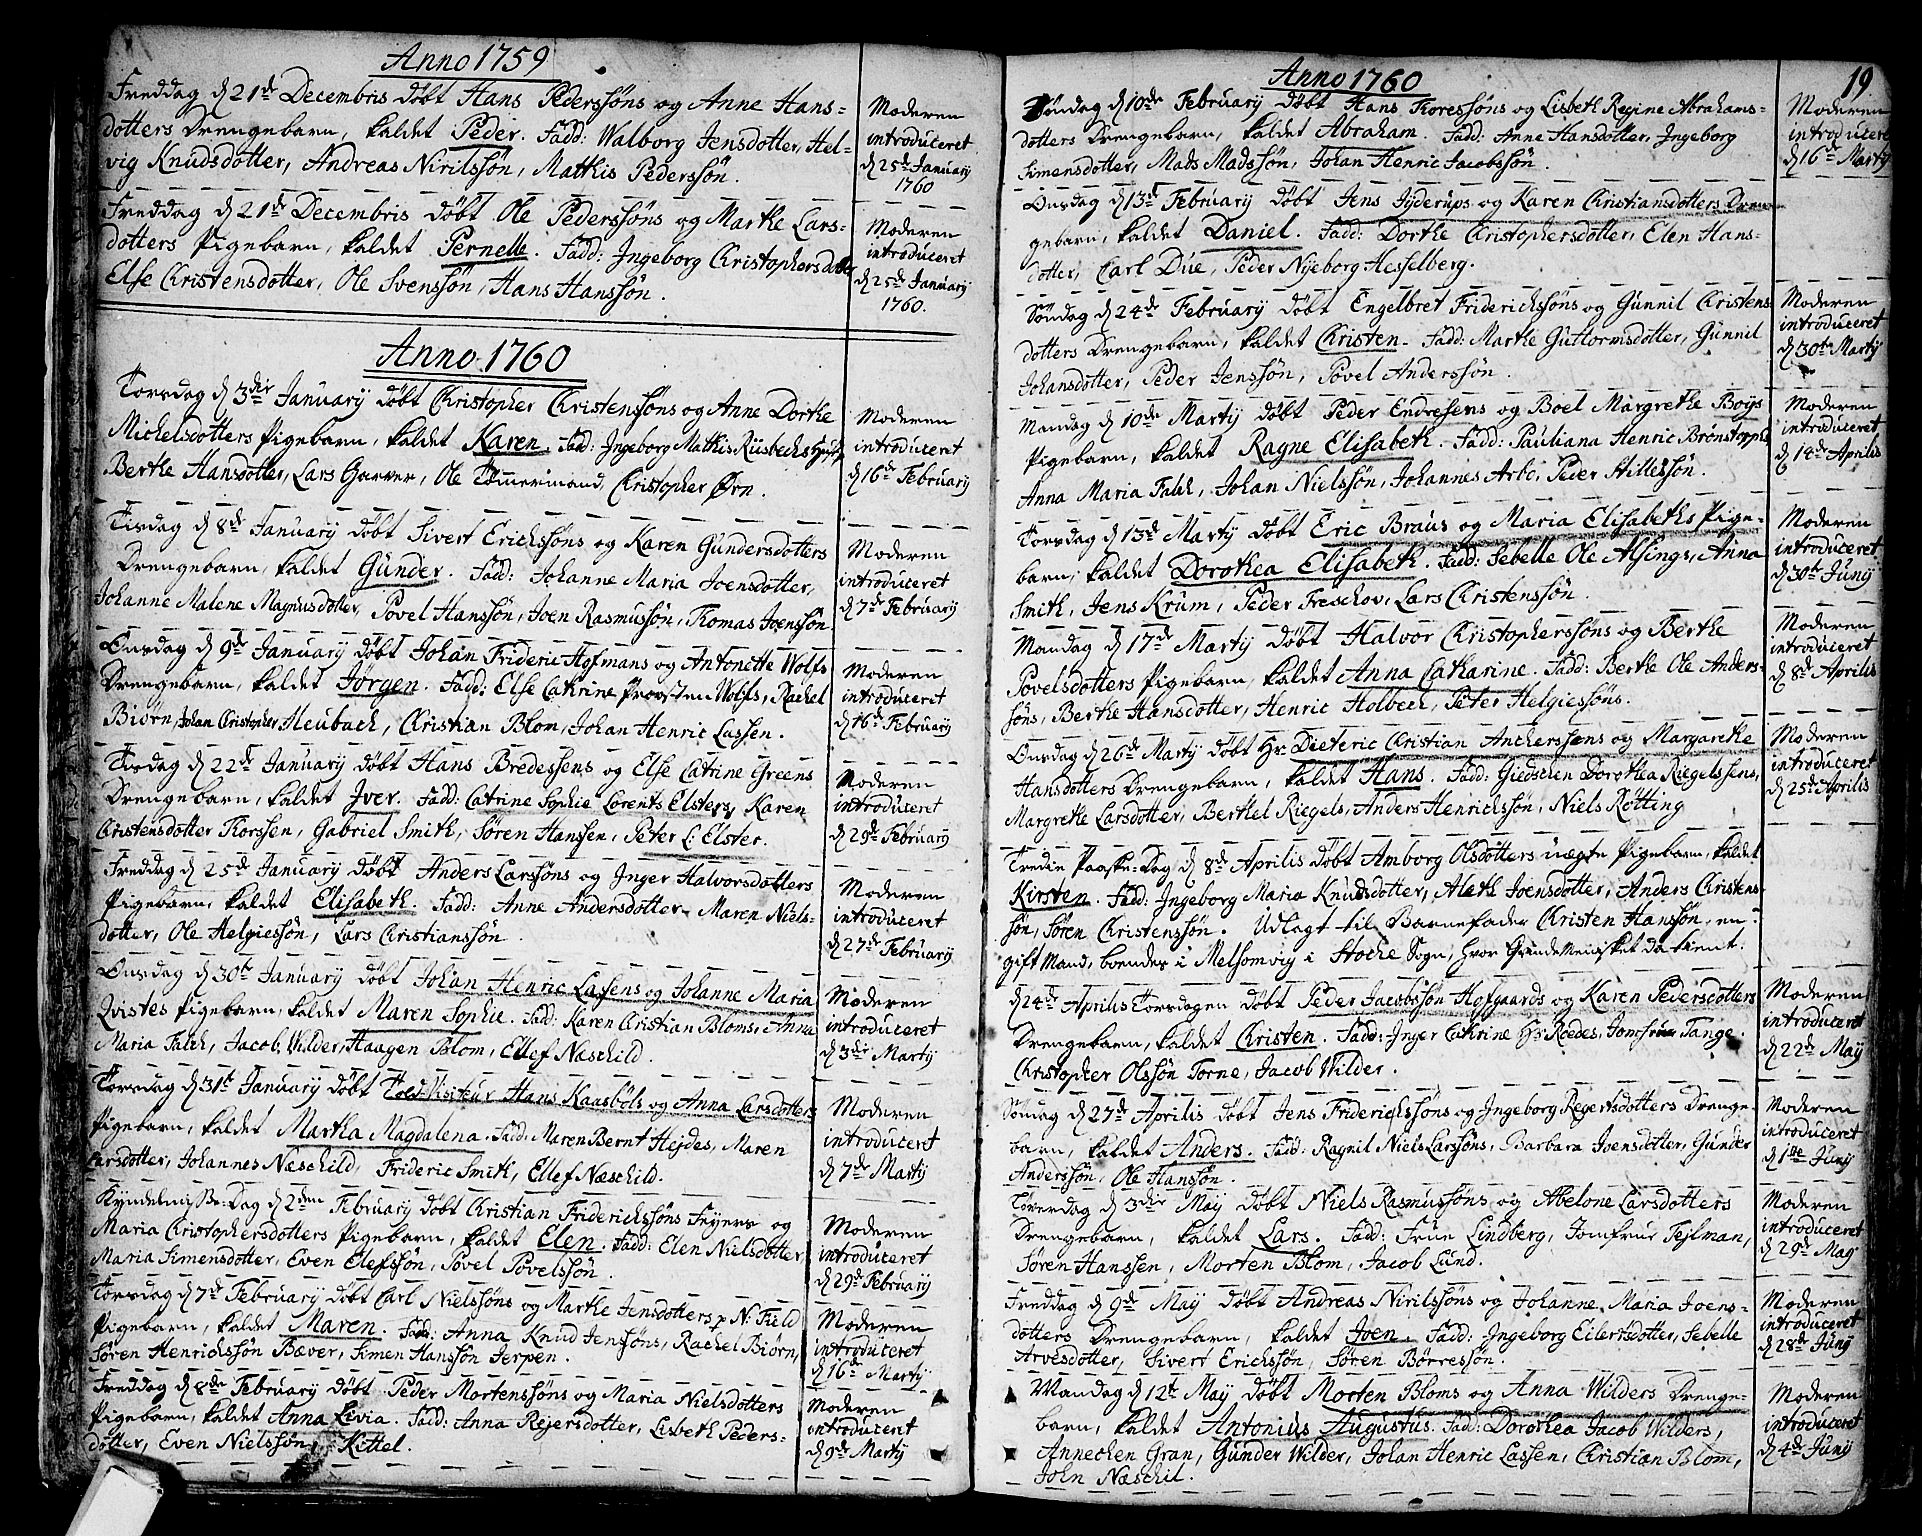 Anno 1759
Freddag d 21de Decembris döbt Hans Pederssöns og Anne Hans-
dotters Drengebarn, kaldet Peder. Fadd: Walborg Jensdotter, Hel-
vig Knudsdotter, Andreas Nirilssön, Mathis Pederssön.
Moderen
introduceret
d 25de January
1760
Freddag d 21de Decembris döbt Ole Pederssöns og Marthe Lars-
dotters Pigebarn, kaldet Pernelle. Fadd: Ingeborg Christophersdotter
Else Christensdotter, Ole Svenssön, Hans Hanssön.
Moderen
introduceret
d 25de January
1760.
Anno 1760
Torsdag d 3die January döbt Christopher Christenssöns og Anne Dorthe
Michelsdotters Pigebarn, kaldet Karen. Fadd: Ingeborg Mathis Riisbechs
Berthe Hansdotter, Lars Garver, Ole Tömmermand, Christopher Ørn.
Moderen
introduceret
d 16de February
Tisdag d 8de January döbt Sivert Erichssöns og Karen Gundersdotters
Drengebarn, kaldet Gunder. Fadd: Johanne Maria Joensdotter,
Johanne Malene Magnusdotter, Povel Hanssön, Joen Rasmussön, Thomas Joenssön.
Moderen
introduceret
d 7de February
Onsdag d 9de January döbt Johan Frideric Hofmans og Antonette Wolfs
Drengebarn, kaldet Jörgen. Fadd: Else Cathrine Provsten Wolfs, Rachel
Biörn, Johan Christopher Heubach, Christian Blom, Johan Henric Lassen.
Moderen
introduceret
d 16de February
Tisdag d 22de January döbt Hans Bredessens og Else Catrine Greens
Drengebarn, kaldet Jver. Fadd: Catrine Sophie Lorents Elsters, Karen
Christensdotter Thorssen, Gabriel Smith, Sören Hanssen, Peter L: Elster.
Moderen
introduceret
d 29de February
Freddag d 25de January döbt Anders Larssöns og Jnger Halvorsdotters
Pigebarn, kaldet Elisabeth. Fadd: Anne Andersdotter, Maren Niels-
dotter, Ole Helgiessön, Lars Christianssön.
Moderen
introduceret
d 27de February
Onsdag d 30te January döbt Johan Henric Lassens og Johanne Maria
Qvistes Pigebarn, kaldet Maren Sophie. Fadd: Karen Christian Bloms, Anna
Maria Falch, Jacob Wilder, Haagen Blom, Ellef Næschild.
Moderen
introduceret
d 3die Marty
Torsdag d 31te January döbt Told-Visiteur Hans Kaasböls og Anna Larsdotters
Pigebarn, kaldet Martha Magdalena. Fadd: Maren Bernt Hejdes, Maren
Larsdotter, Johannes Næschild, Frideric Smith, Ellef Næschild.
Moderen
introduceret
d 7de Marty
Kyndelmisse-Dag d 2den February döbt Christian Friderichssöns Fejers og
Maria Christophersdotters Pigebarn, kaldet Elen. Fadd: Elen Nielsdotter,
Maria Simensdotter, Even Elefssön, Povel Povelssön.
Moderen
introduceret
d 29de February
Torsdag d 7de February döbt Carl Nielssöns og Marthe Jensdotters p N: Field
Pigebarn, kaldet Maren. Fadd: Anna Knud Jenssöns, Rachel Biörn,
Sören Henrichssön Bæver, Simen Hanssön Jerpen.
Moderen
introduceret
d 16de Marty
Freddag d 8de February döbt Peder Mortenssöns og Maria Nielsdotters
Pigebarn, kaldet Anna Livia. Fadd: Anna Rejersdotter, Lisbeth Peders-
dotter, Even Nielssön, Kittel.
Moderen
introduceret
d 9de Marty
Anno 1760
19
Söndag d 10de February döbt Hans Thoressöns og Lisbeth Regine Abrahams-
dotters Drengebarn, kaldet Abraham. Fadd: Anne Hansdotter, Jngeborg
Simensdotter, Mads Madssön, Johan Henric Jacobssön.
Moderen
introduceret
d 16de Marty
Onsdag d 13de February döbt Jens Jyderups og Karen Christiansdotters Dren-
gebarn, kaldet Daniel. Fadd: Dorthe Christophersdotter, Elen Hans-
dotter, Carl Due, Peder Nyeborg Hesselberg.
Söndag d 24de February döbt Engelbret Friderichssöns og Gunnil Christens-
dotters Drengebarn, kaldet Christen. Fadd: Marthe Guttormsdotter, Gunnil
Johansdotter, Peder Jenssön, Povel Anderssön.
Moderen
introduceret
d 30te Marty
Mandag d 10de Marty döbt Peder Endresens og Boel Margrethe Boys
Pigebarn, kaldet Ragne Elisabeth. Fadd: Pauliana Henric Brönstorphs
Anna Maria Falch, Johan Nielssön, Johannes Arbo, Peder Hillessön.
Moderen
introduceret
d 14de Aprilis
Torsdag d 13de Marty döbt Eric Braus og Maria Elisabeths Pige-
barn, kaldet Dorothea Elisabeth. Fadd: Sebelle Ole Alsings, Anna
Smith, Jens Krum, Peder Freschov, Lars Christenssön.
Moderen
introduceret
d 30te Juny
Mandag d 17de Marty döbt Halvor Christopherssöns og Berthe
Povelsdotters Pigebarn, kaldet Anna Catharine. Fadd: Berthe Ole Anders-
söns, Berthe Hansdotter, Henric Holbech, Peter Helgiessöns.
Moderen
introduceret
d 8de Aprilis
Onsdag d 26de Marty döbt Hr. Dieteric Christian Ancherssens og Margarethe
Hansdotters Drengebarn, kaldet Hans. Fadd: Giedschen Dorothea Riegelssens,
Margrethe Larsdotter, Berthel Riegels, Anders Henrichssön, Niels Rötting
Moderen
introduceret
d 25de Aprilis
Tredie Paaske-Dag d 8de Aprilis döbt Amborg Olsdotters uægte Pigebarn, kaldet
Kirsten. Fadd: Jngeborg Maria Knudsdotter, Aleth Joensdotter, Anders Christens-
sön, Sören Christenssön. Udlagt til Barnefader Christen Hanssön, en
gift Mand, boendes i Melsomvig i Stocke Sogn, hvor Qvindemennisket da tient.
d 24de Aprilis Torsdagen döbt Peder Jacobssön Hofgaards og Karen Pedersdotters
Drengebarn, kaldet Christen. Fadd: Jnger Cathrine Hr Roedes, Jomfrue Tange.
Christopher Olssön Torne, Jacob Wilder.
Moderen
introduceret
d 22de May
Söndag d 27de Aprilis döbt Jens Friderichssöns og Jngeborg Regertsdotters Drenge-
barn, kaldet Anders. Fadd: Ragnil Niels Larssöns, Barbara Joensdotter, Gunder
Anderssön, Ole Hanssön.
Moderen
introduceret
d 1te Juny
Löverdag d 3die May döbt Niels Rasmussöns og Abelone Larsdotters
Drengebarn, kaldet Lars. Fadd: Frue Lindberg, Jomfrue Fejlman,
Sören Hanssen, Morten Blom, Jacob Lund.
Moderen
introduceret
d 29de May
Freddag d 9de May döbt Andreas Nirilssöns og Johanne Maria Joens-
dotters Drengebarn, kaldet Joen. Fadd: Jngeborg Eilertsdotter, Sebelle
Arvesdotter, Sivert Erichssön, Sören Börressön.
Moderen
introduceret
d 28de Juny
Mandag d 12te May döbt Morten Bloms og Anna Wilders Drenge-
barn, kaldet Antonius Augustus. Fadd: Dorothea Jacob Wilders,
Annechen Gran, Gunder Wilder, Johan Henric Lassen, Christian Blom,
John Næschil.
Moderen
introduceret
d 4de Juny